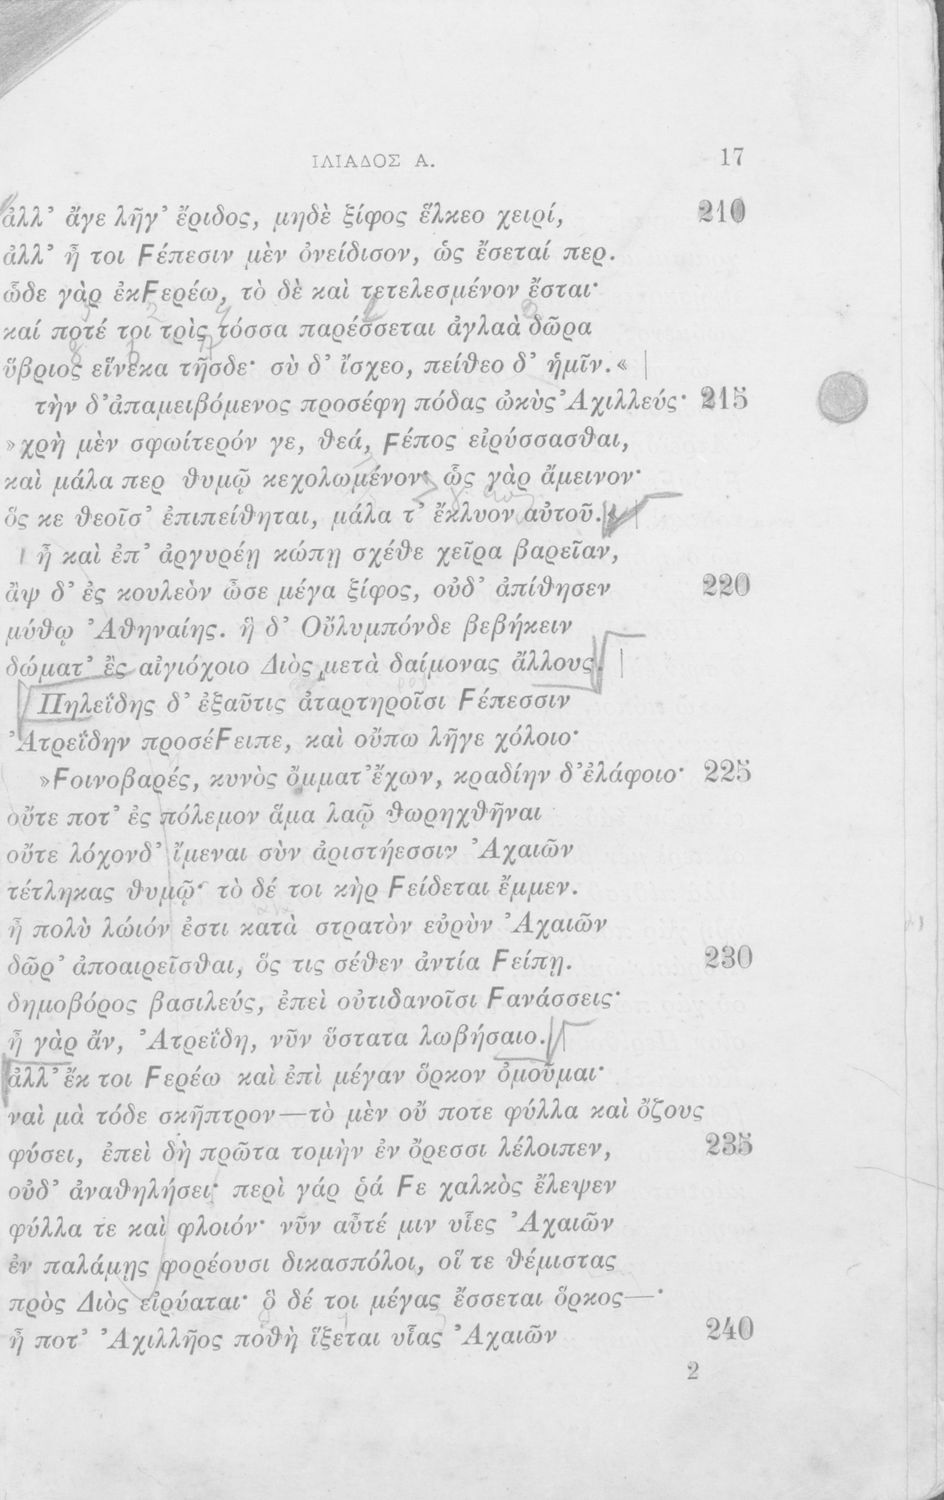 ΙΛΙΑΔΟΣ Α. 17
ἀλλ’ ἄγε λῆγ’ ἔριδος, μηδὲ ξίφος ἕλκεο χειρί, 210
ἀλλ’ ἦ τοι Ϝέπεσιν μὲν ὀνείδισον, ὡς ἔσεταί περ.
ὧδε γὰρ ἐκϜερέω, τὸ δὲ καὶ τετελεσμένον ἔσται·
καί ποτέ τοι τρὶς τόσσα παρέσσεται ἀγλαὰ δῶρα
ὕβριος εἵνεκα τῆσδε· σὺ δ’ ἴσχεο, πείθεο δ’ ἡμῖν.«
τὴν δ’ἀπαμειβόμενος προσέφη πόδας ὠκὺς Ἀχιλλεύς· 215
»χρὴ μὲν σφωίτερόν γε, θεά, Ϝέπος εἰρύσσασθαι,
καὶ μάλα περ θυμῷ κεχολωμένον· ὧς γὰρ ἄμεινον·
ὅς κε θεοῖσ’ ἐπιπείθηται, μάλα τ’ ἔκλυον αὐτοῦ.«
ἦ καὶ ἐπ’ ἀργυρέῃ κώπῃ σχέθε χεῖρα βαρεῖαν,
ἂψ δ’ ἐς κουλεὸν ὦσε μέγα ξίφος, οὐδ’ ἀπίθησεν 220
μύθῳ Ἀθηναίης. ἣ δ’ Οὔλυμπόνδε βεβήκειν
δώματ’ ἐς αἰγιόχοιο Διὸς μετὰ δαίμονας ἄλλους.
Πηλεΐδης δ’ ἐξαῦτις ἀταρτηροῖσι Ϝέπεσσιν
Ἀτρεΐδην προσέϜειπε, καὶ οὔπω λῆγε χόλοιο·
»Ϝοινοβαρές, κυνὸς ὄμματ’ἔχων, κραδίην δ’ἐλάφοιο· 225
οὔτε ποτ’ ἐς πόλεμον ἅμα λαῷ θωρηχθῆναι
οὔτε λόχονδ’ ἴμεναι σὺν ἀριστήεσσιν Ἀχαιῶν
τέτληκας θυμῷ· τὸ δέ τοι κὴρ Ϝείδεται ἔμμεν.
ἦ πολὺ λώιόν ἐστι κατὰ στρατὸν εὐρὺν Ἀχαιῶν
δῶρ’ ἀποαιρεῖσθαι, ὅς τις σέθεν ἀντία Ϝείπῃ. 230
δημοβόρος βασιλεύς, ἐπεὶ οὐτιδανοῖσι Ϝανάσσεις·
ἦ γὰρ ἄν, Ἀτρεΐδη, νῦν ὕστατα λωβήσαιο.
ἀλλ’ ἔκ τοι Ϝερέω καὶ ἐπὶ μέγαν ὅρκον ὀμοῦμαι·
ναὶ μὰ τόδε σκῆπτρον—τὸ μὲν οὔ ποτε φύλλα καὶ ὄζους
φύσει, ἐπεὶ δὴ πρῶτα τομὴν ἐν ὄρεσσι λέλοιπεν, 235
οὐδ’ ἀναθηλήσει· περὶ γάρ ῥά Ϝε χαλκὸς ἔλεψεν
φύλλα τε καὶ φλοιόν· νῦν αὖτέ μιν υἷες Ἀχαιῶν
ἐν παλάμῃς φορέουσι δικασπόλοι, οἵ τε θέμιστας
πρὸς Διὸς εἰρύαται· ὃ δέ τοι μέγας ἔσσεται ὅρκος—·
ἦ ποτ’ Ἀχιλλῆος ποθὴ ἵξεται υἷας Ἀχαιῶν 240
2